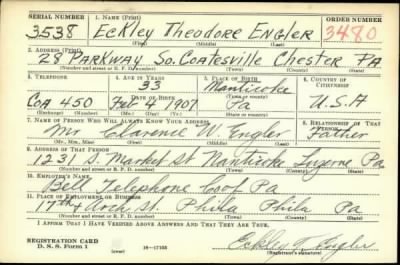 SERIAL NUMBER 1. NAME (Print) ORDER NUMBER
3538 ECKLEY THEODORE ENGLER 3480
(First) (Middle) (Last)
2. ADDRESS (Print)
28 PARKWAY SO. COATESVILLE CHESTER PA
(Number and street or R. F. D. number) (Town) (County) (State)
3. TELEPHONE 4. AGE IN YEARS 5. PLACE OF BIRTH 6. COUNTRY OF CITIZENSHIP
33 Nanticoke
DATE OF BIRTH (Town or county)
COA 450 Feb 4 1907 Pa U.S.A
(Exchange) (Number) (Mo.) (Day) (Yr.) (State or country)
7. NAME OF PERSON WHO WILL ALWAYS KNOW YOUR ADDRESS 8. RELATIONSHIP OF THAT PERSON
Mr Clarence W. Engler Father
(Mr., Mrs., Miss) (First) (Middle) (Last)
9. ADDRESS OF THAT PERSON
1231 S. Market St Nanticoke Luzerne Pa
(Number and street or R. F. D. number) (Town) (County) (State)
10. EMPLOYER'S NAME
Bell Telephone Co of Pa
11. PLACE OF EMPLOYMENT OR BUSINESS
17th & Arch St. Phila Phila Pa
(Number and street or R. F. D. number) (Town) (County) (State)
I AFFIRM THAT I HAVE VERIFIED ABOVE ANSWERS AND THAT THEY ARE TRUE.
REGISTRATION CARD
D. S. S. Form 1 16-17105 Eckley T. Engler
(Registrant's signature)